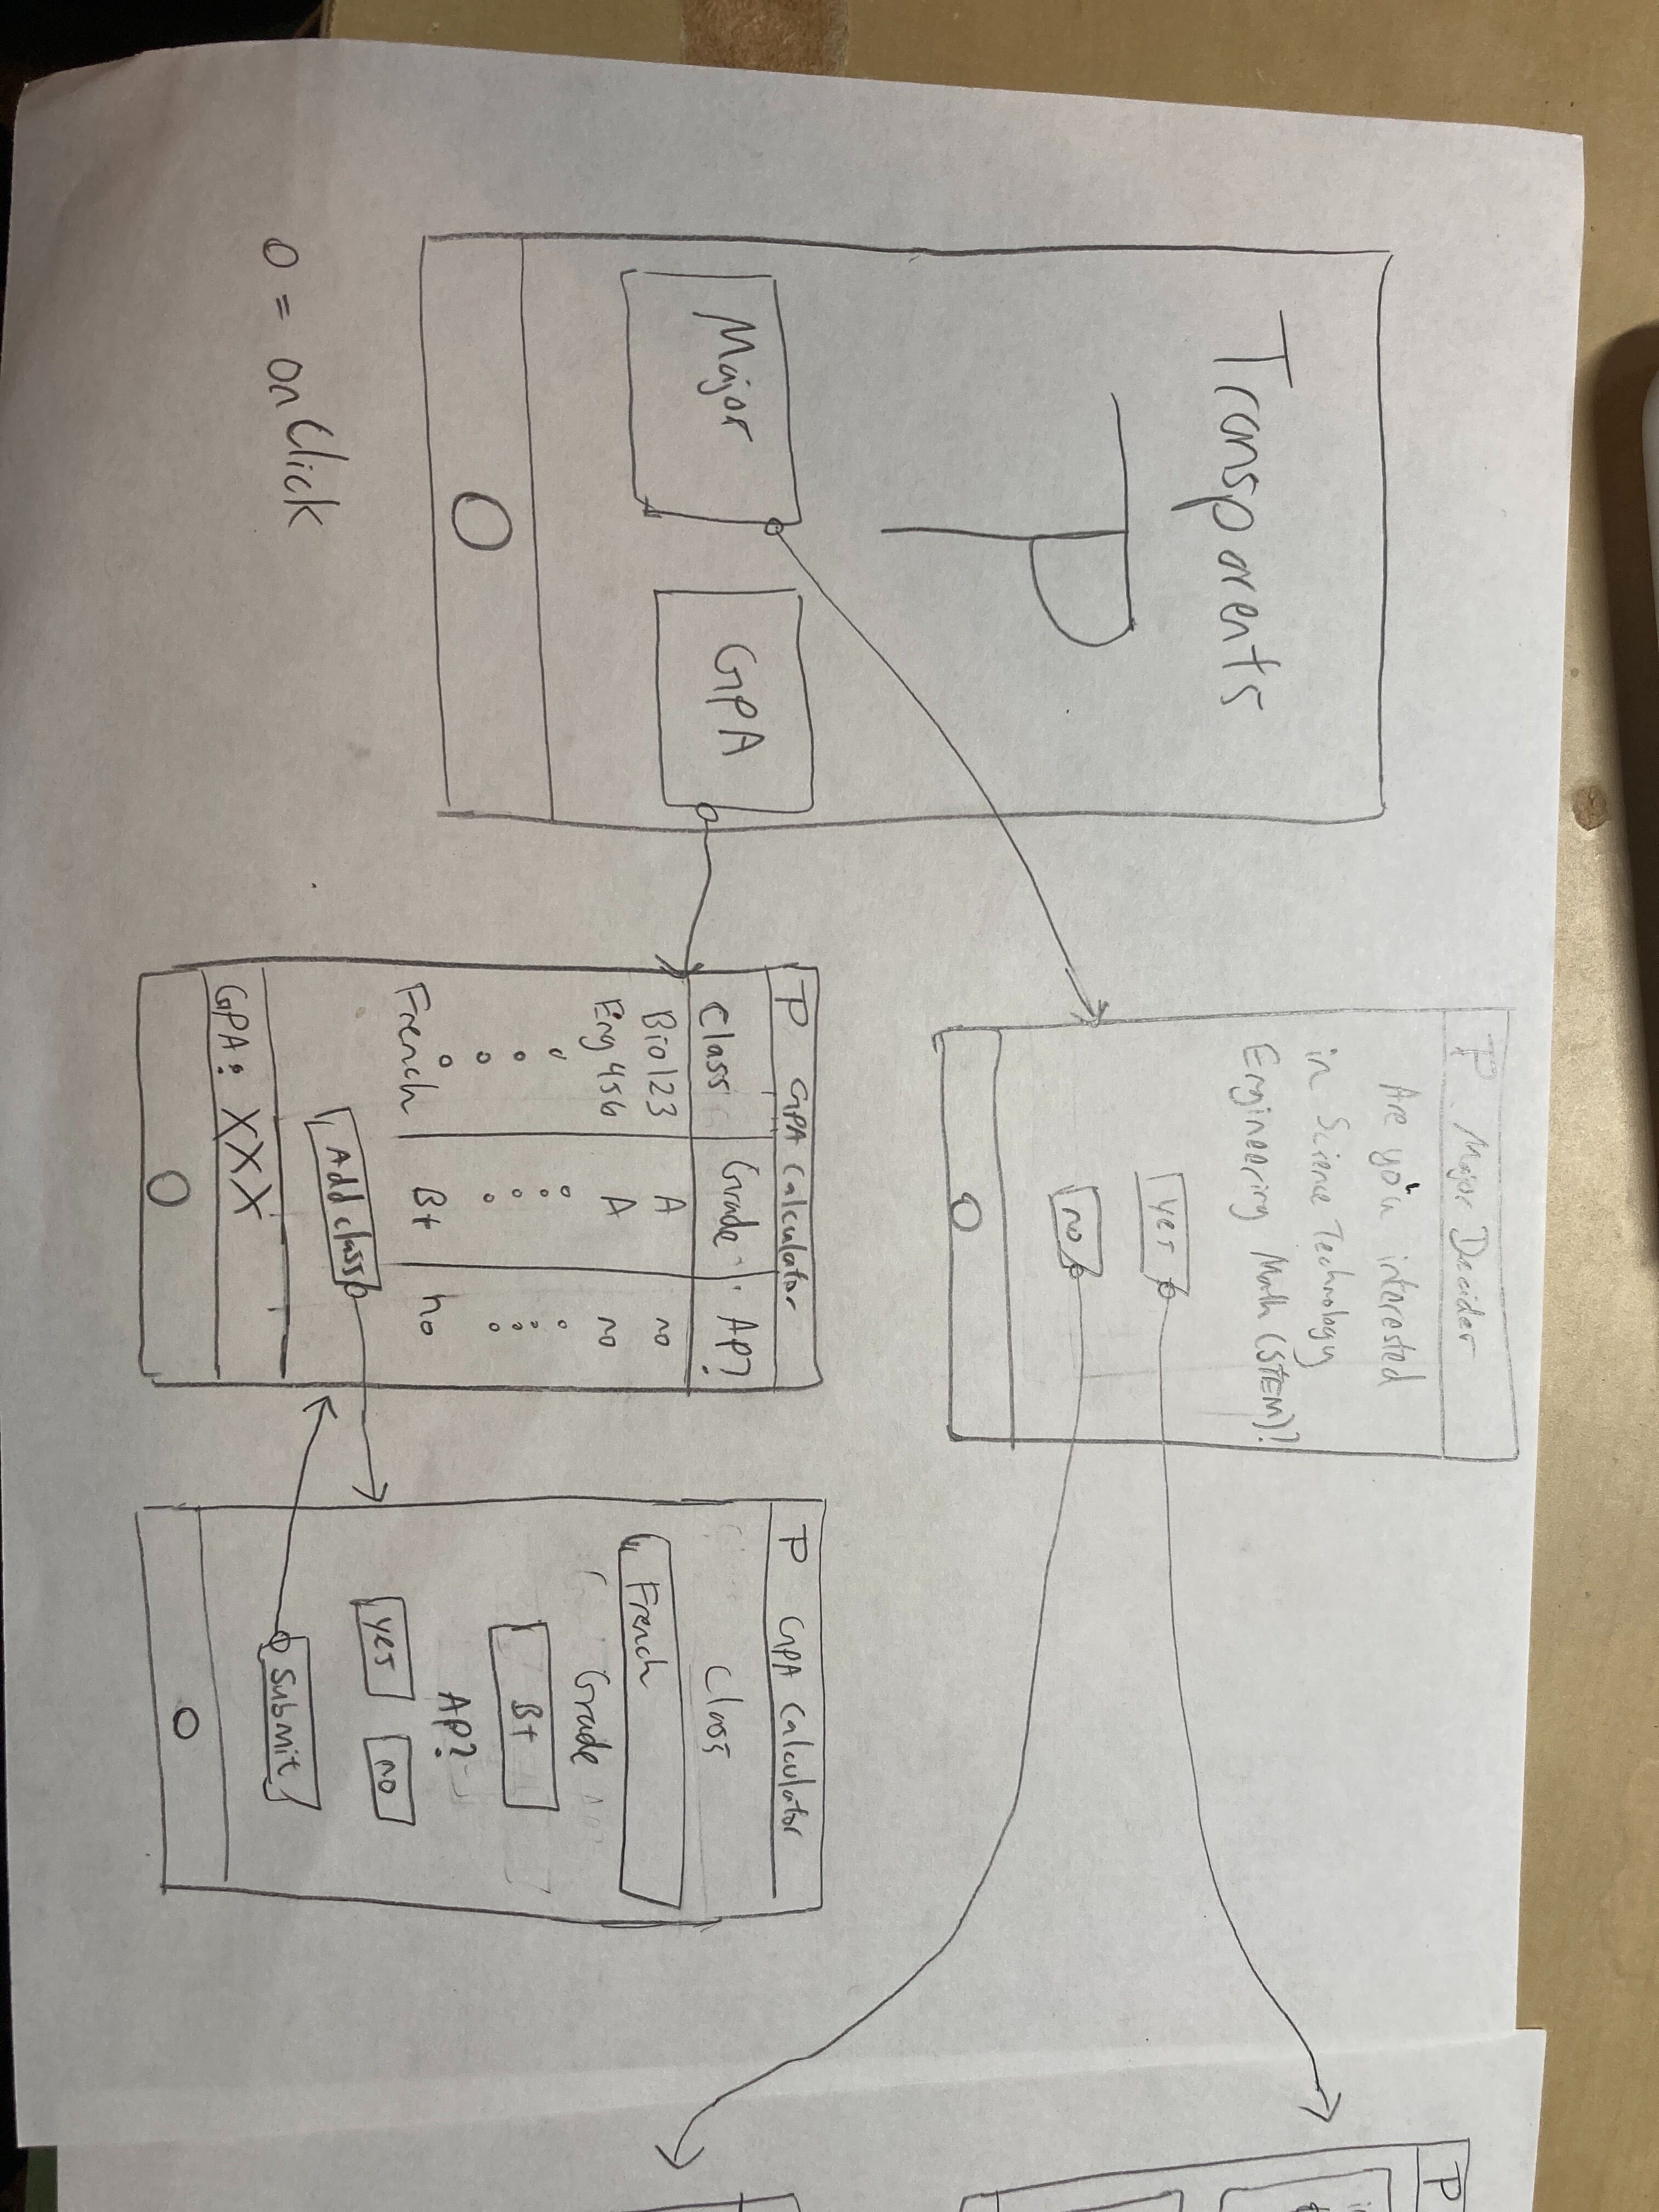 Transparents
TP
Major
GPA
O = onClick
TP Major Decider
Are you interested
in Science Technology
Engineering Math (STEM)?
yes
no
TP GPA Calculator
Class Grade AP?
Bio123 A no
Eng 456 A no
French B+ no
Add class
GPA: XXX
TP GPA Calculator
Class
French
Grade
B+
AP?
yes no
Submit
TP